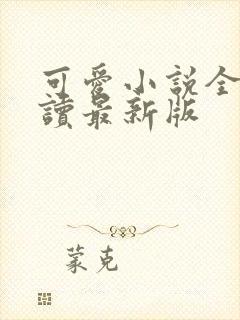 可愛小說全
讀最新版
蒙克